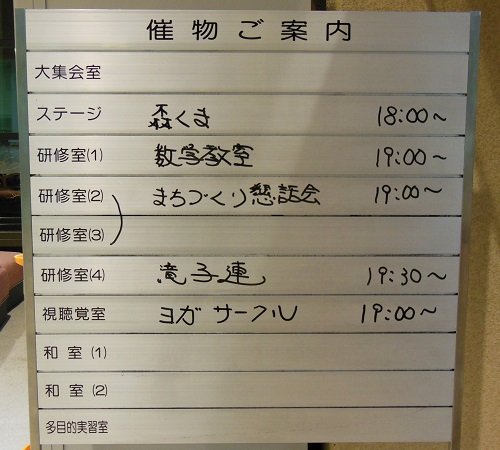 催物ご案内
大集会室
ステージ 森くま 18:00～
研修室(1) 数学教室 19:00～
研修室(2) まちづくり懇話会 19:00～
研修室(3)
研修室(4) 竜子連 19:30～
視聴覚室 ヨガサークル 19:00～
和室(1)
和室(2)
多目的実習室